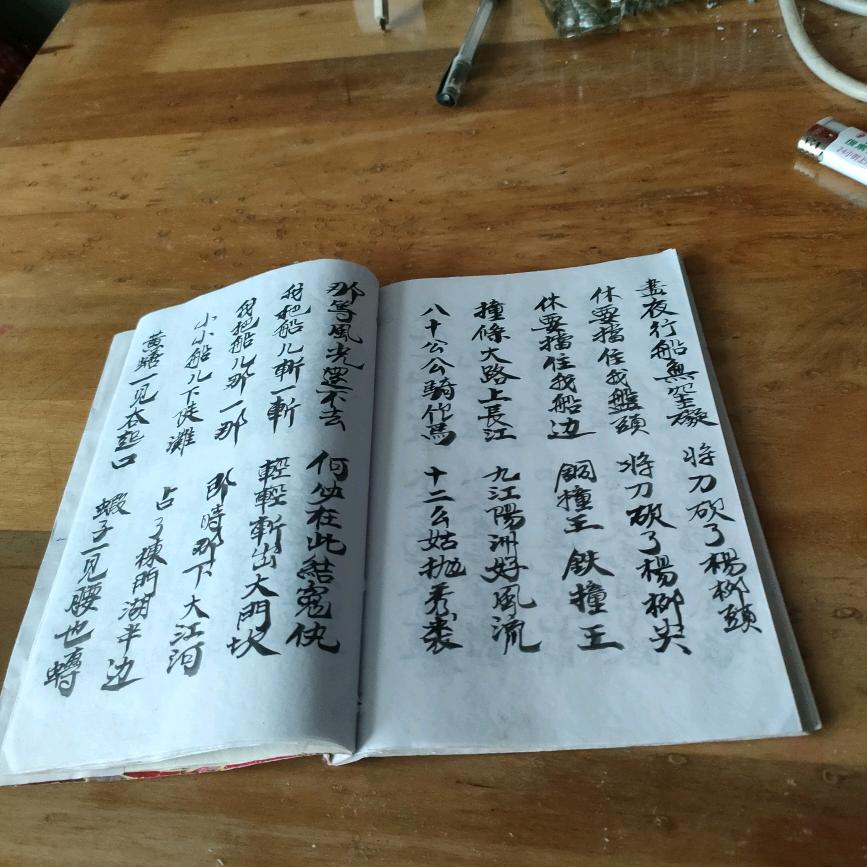 晝夜行船魚 將刀砍了楊柳頭
休要擋住我盤頭 將刀砍了楊柳尖
休要擋住我船边 銅撞王 鉄撞王
撞條大路上長江 九江陽洲好風流
八十公公騎作馬 十二么姑抛秀裘
那等風光還不去 何仇在此結冤仇
我把船儿斬一斬 輕輕斬出大門坎
我把船儿那一那 即時那下大江河
小小船儿下陡灘 占了棟門湖半边
黄鳝一见衣起口 蝦子一见腰也轉